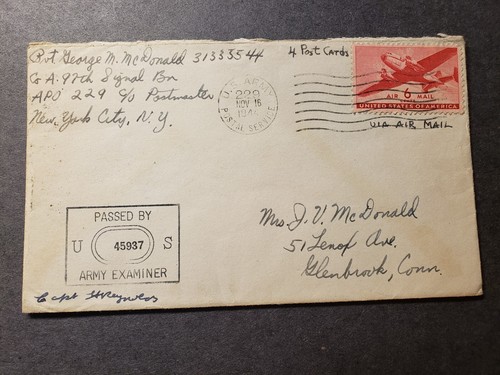 Pvt George M. McDonald 31333544
Co A. 97th Signal Bn
APO 229 c/o Postmaster
New York City, N.Y.
4 Post Cards
U.S. ARMY
229
NOV 16
194
POSTAL SERVICE
AIR 6 MAIL
UNITED STATES OF AMERICA
VIA AIR MAIL
PASSED BY
U 45937 S
ARMY EXAMINER
Capt HReynolds
Mrs J. V. McDonald
51 Lenox Ave.
Glenbrook, Conn.